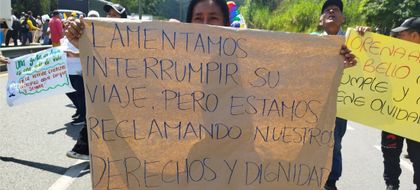 LAMENTAMOS
INTERRUMPIR SU
VIAJE, PERO ESTAMOS
RECLAMANDO NUESTROS
DERECHOS Y DIGNIDAD
BELLO
UMPLE Y
ENE OLVIDA